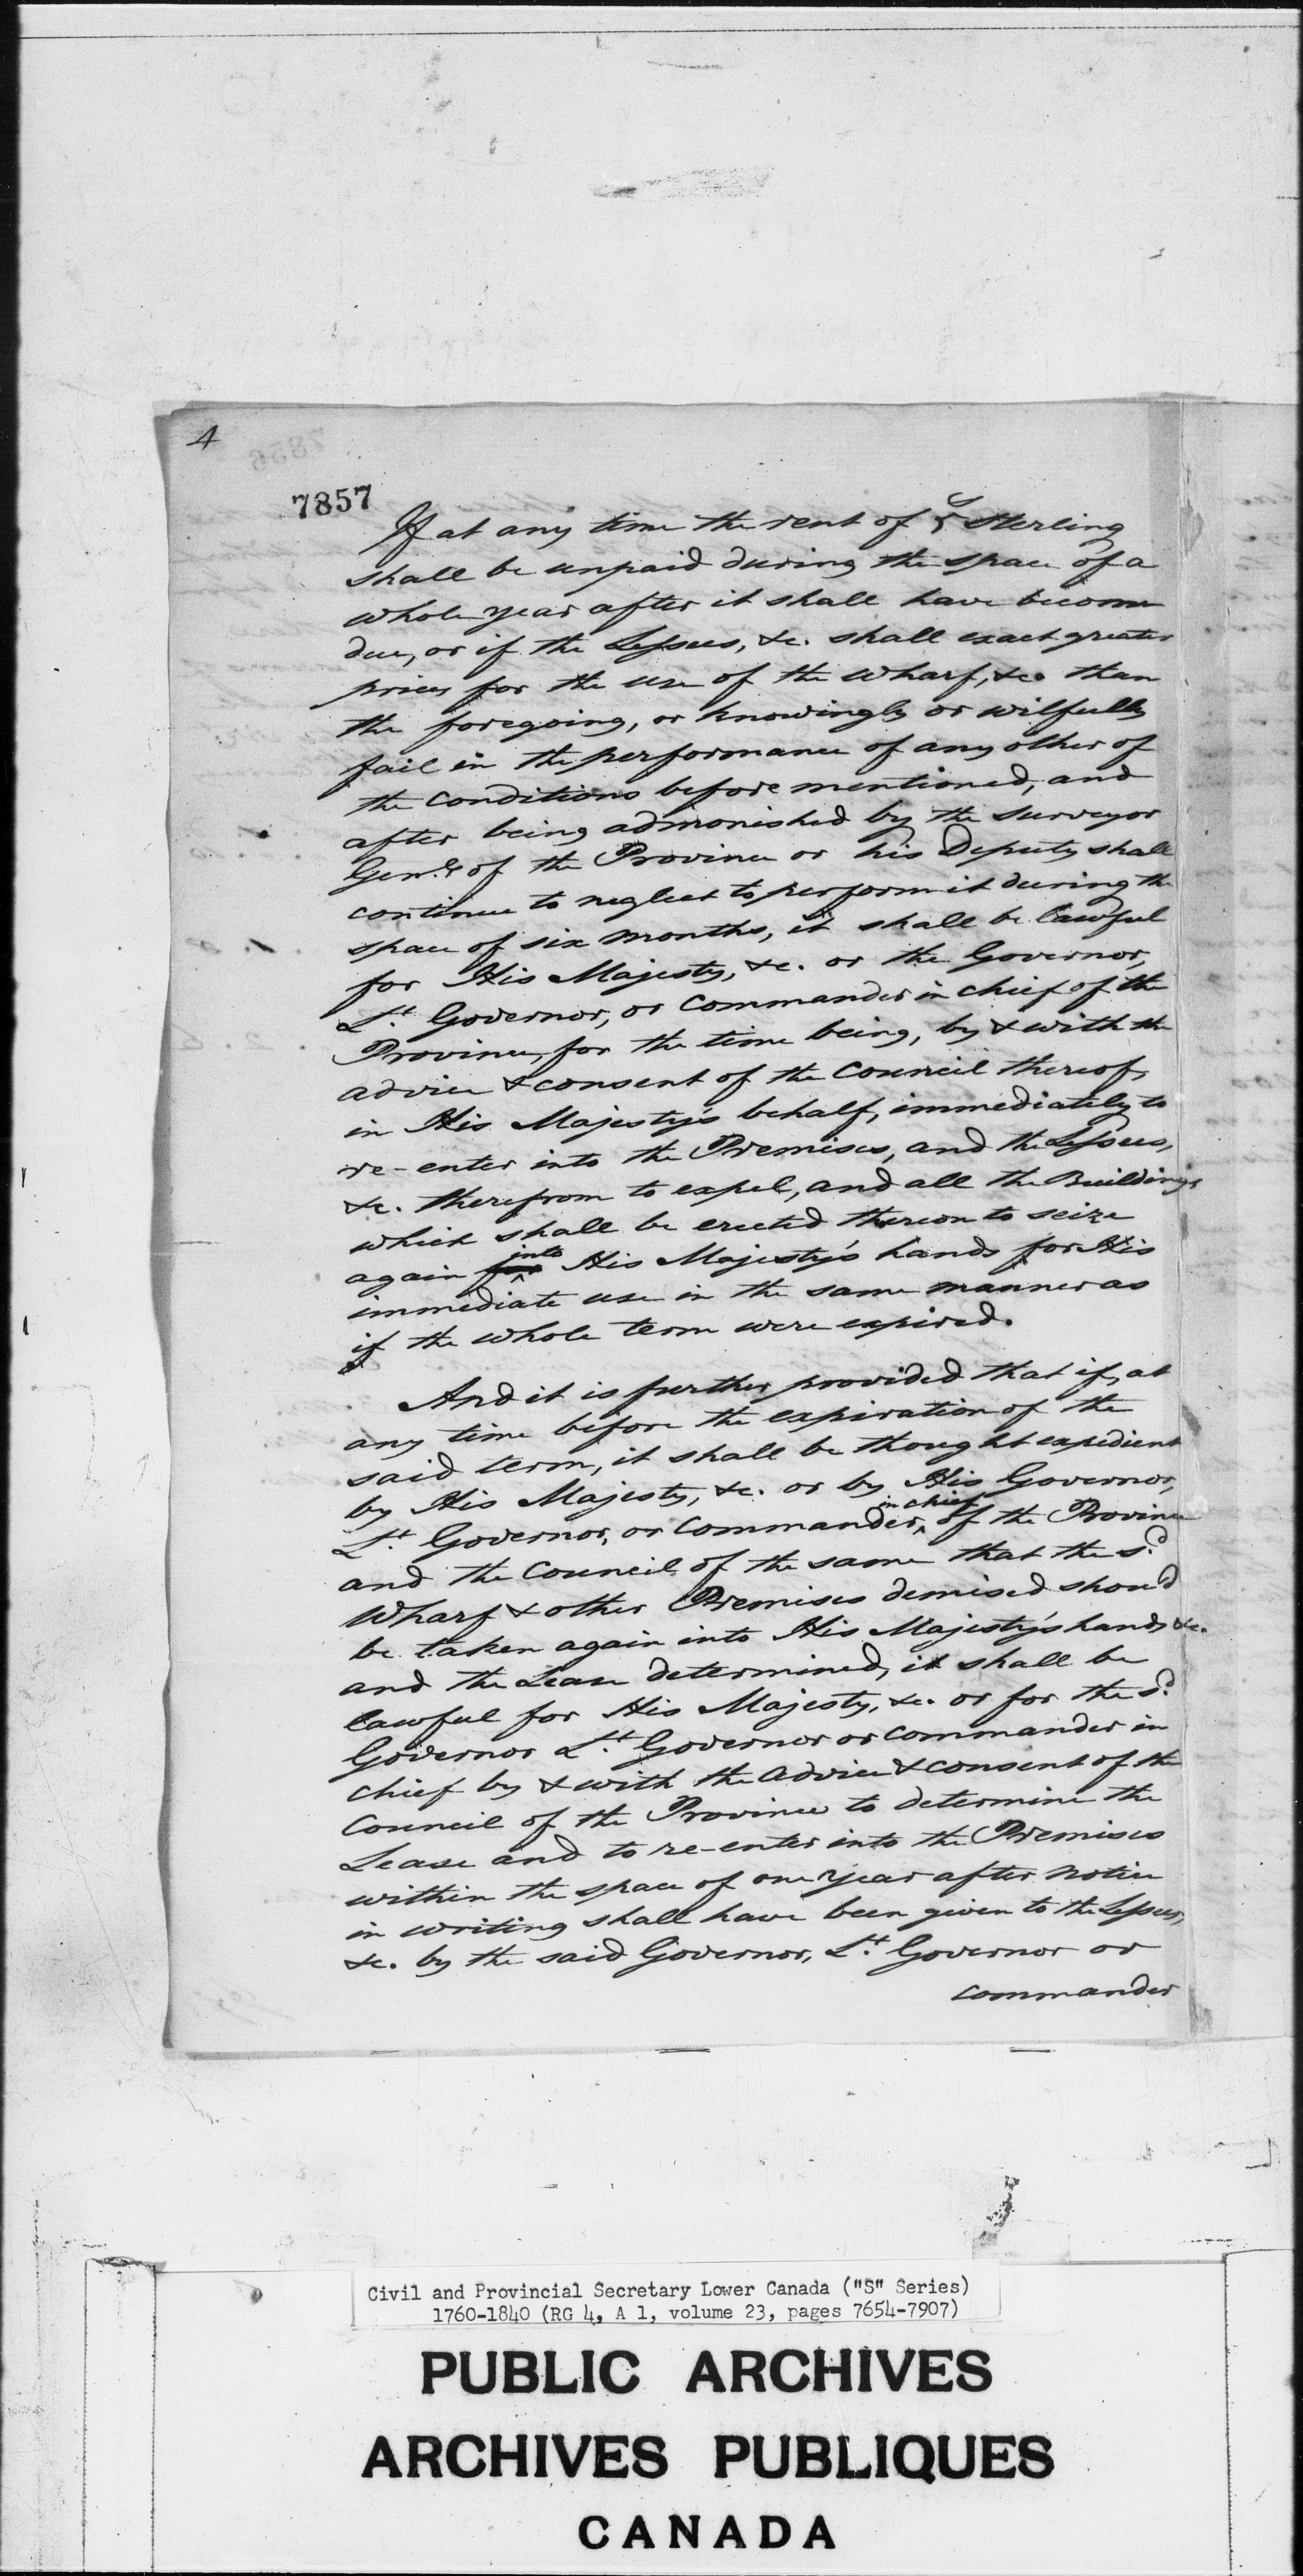 4
7857
If at any time the rent of 5s Sterling
shall be unpaid during the space of a
whole year after it shall have become
due, or if the Lessees, &c. shall exact greater
prices for the use of the wharf, &c. than
the foregoing, or knowingly or wilfully
fail in the performance of any other of
the conditions before mentioned, and
after being admonished by the surveyor
Gen.l of the Province or his Deputy shall
continue to neglect to perform it during the
space of six months, it shall be lawful
for His Majesty, &c. or the Governor,
L.t Governor, or Commander in chief of the
Province, for the time being, by & with the
advice & consent of the Council thereof,
in His Majesty's behalf, immediately to
re-enter into the Premises, and the Lessees,
&c. therefrom to expel, and all the Buildings
which shall be erected thereon to seize
again into His Majesty's hands for His
immediate use in the same manner as
if the whole term were expired.
And it is further provided that if, at
any time before the expiration of the
said term, it shall be thought expedient
by His Majesty, &c. or by His Governor,
L.t Governor, or Commander in chief of the Province
and the Council of the same that the s.d
Wharf & other Premises demised shou'd
be taken again into His Majesty's hands &c.
and the Lease determined, it shall be
lawful for His Majesty, &c. or for the s.d
Governor L.t Governor or Commander in
chief by & with the advice & consent of the
Council of the Province to determine the
Lease and to re-enter into the Premises
within the space of one year after notice
in writing shall have been given to the Lessees,
&c. by the said Governor, L.t Governor or
commander
Civil and Provincial Secretary Lower Canada ("S" Series)
1760-1840 (RG 4, A 1, volume 23, pages 7654-7907)
PUBLIC ARCHIVES
ARCHIVES PUBLIQUES
CANADA